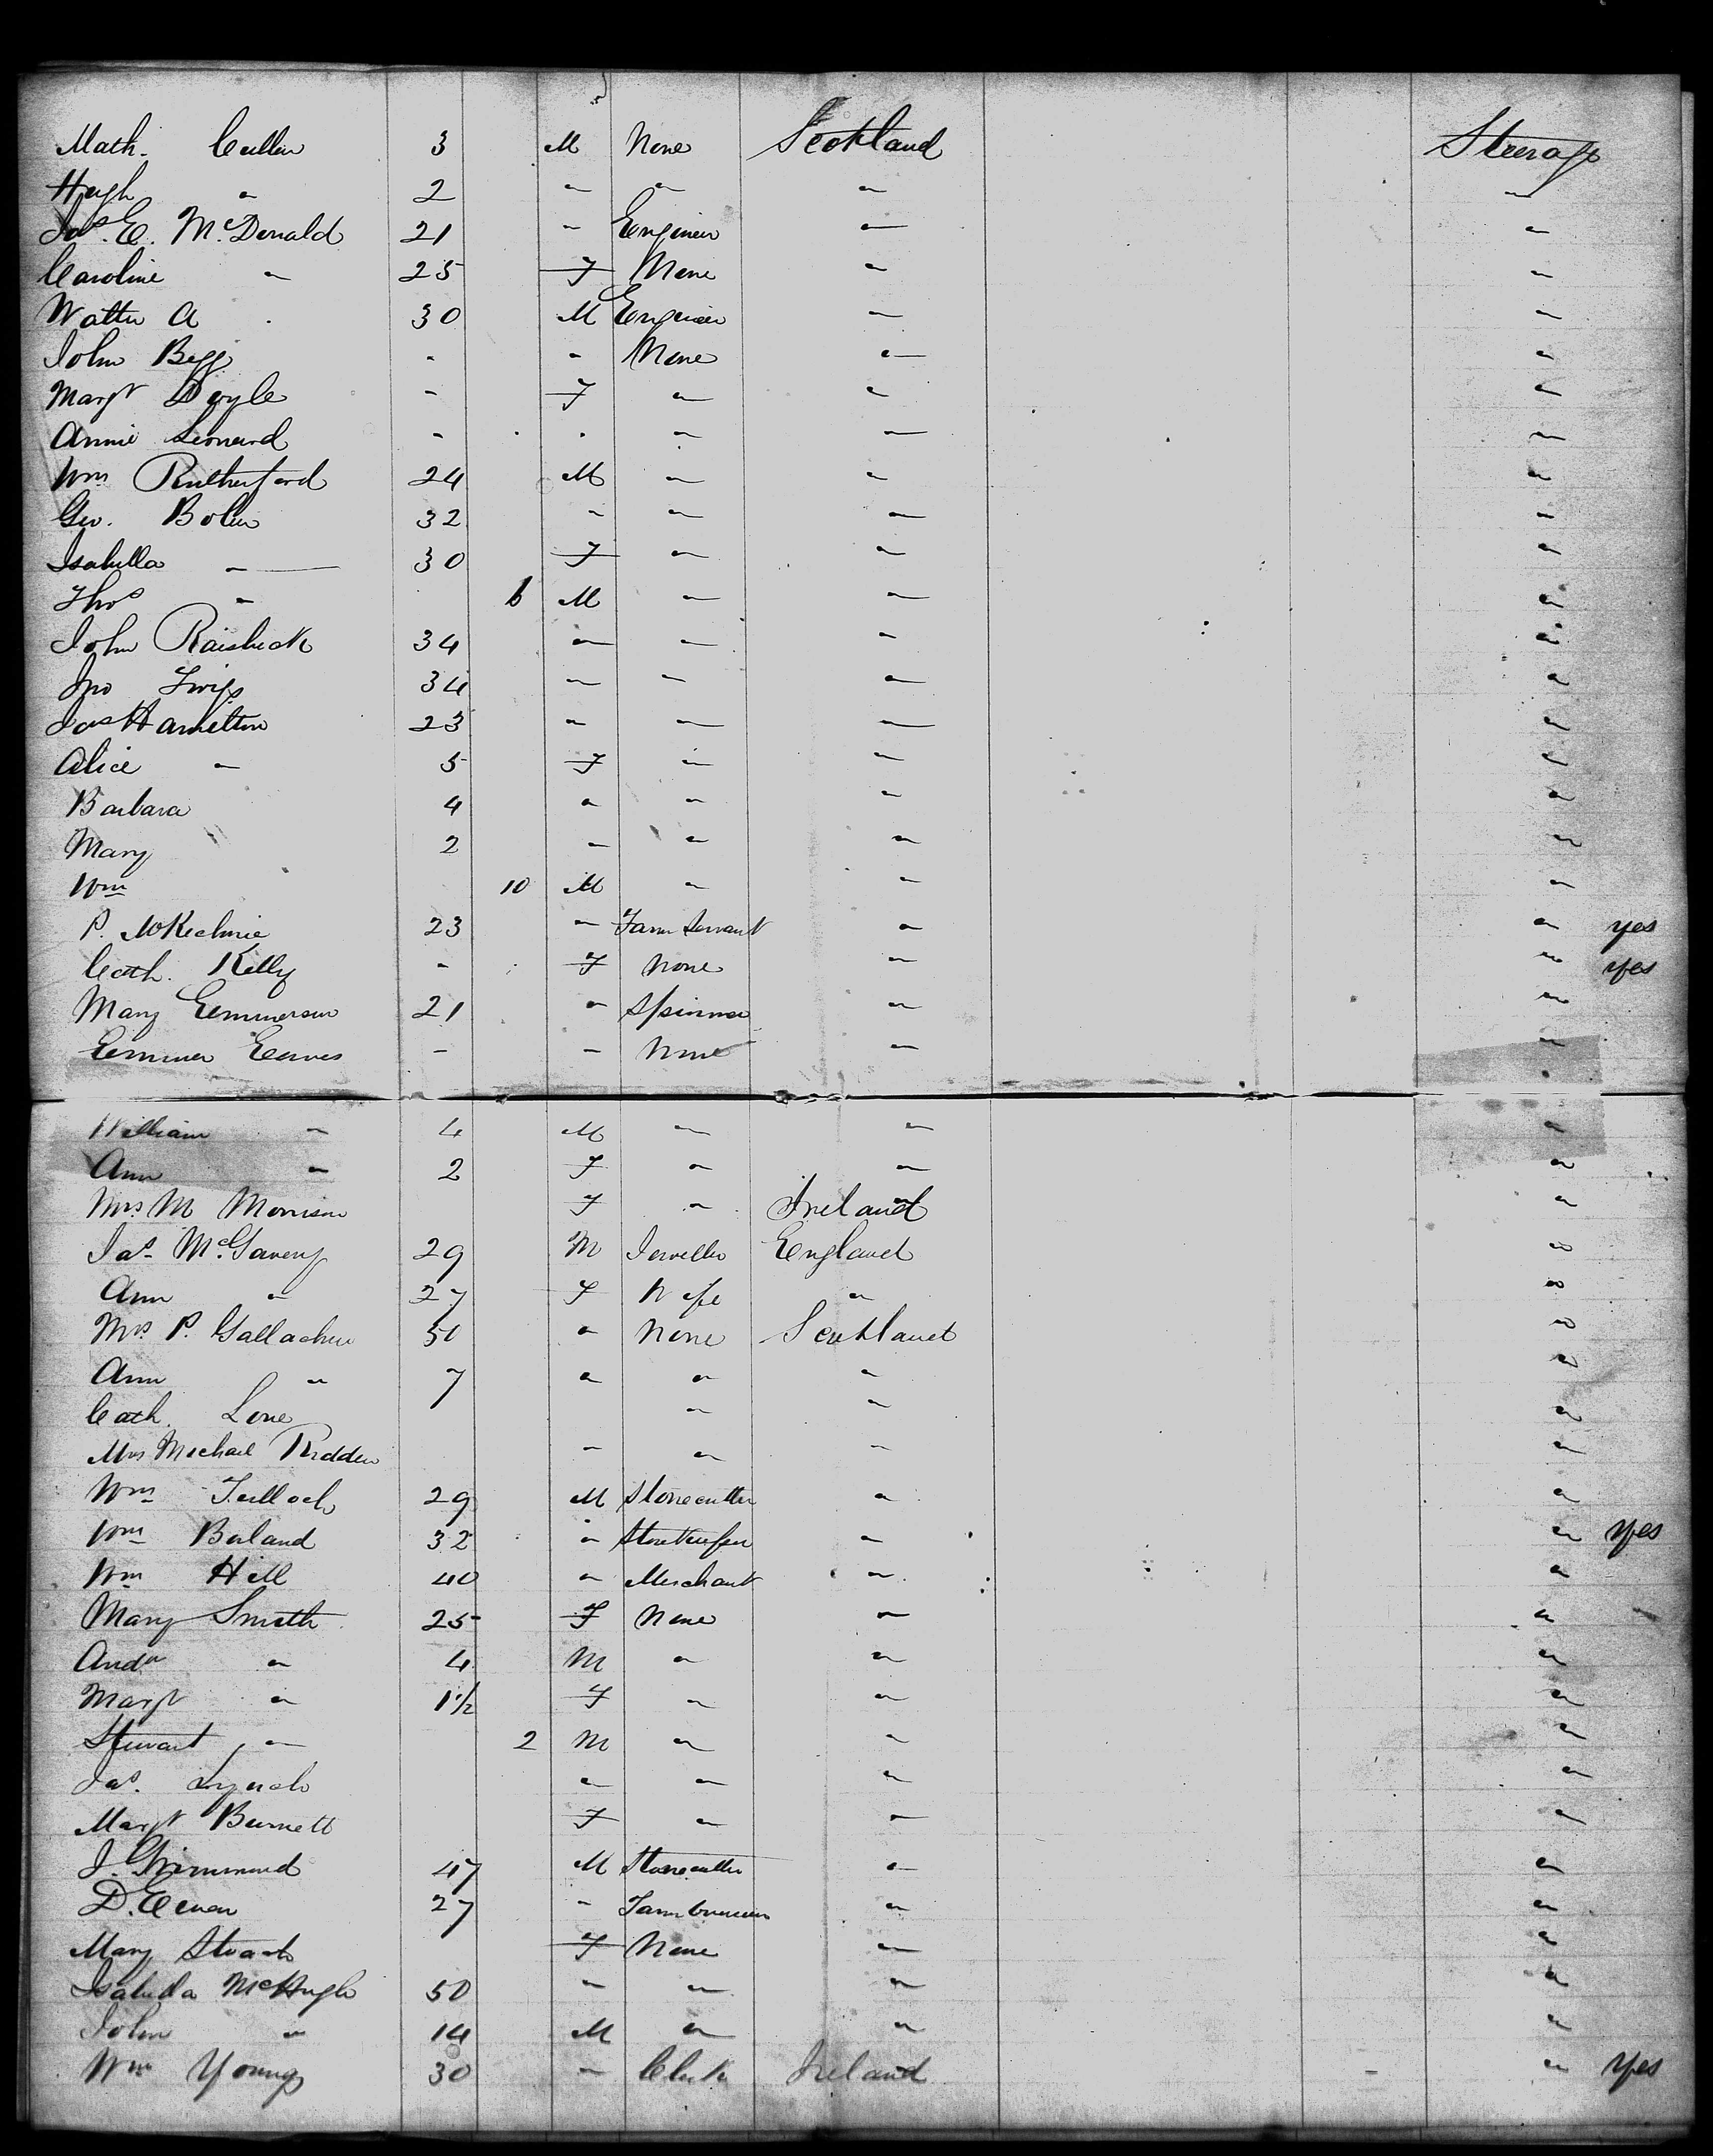 Math. Cullen 3 M None Scotland Steerage
Hugh " 2 " " " "
Jas. E. McDonald 21 " Engineer " "
Caroline " 25 F None " "
Walter A " 30 M Engineer " "
John Begg " " None " "
Margt Doyle " F " " "
Annie Leonard " " " " "
Wm Rutherford 24 M " " "
Geo. Bolen 32 " " " "
Isabella " 30 F " " "
Thos " 6 M " " "
John Raisbeck 34 " " " "
Jno Twigs 34 " " " "
Jas Hamilton 23 " " " "
Alice " 5 F " " "
Barbara 4 " " " "
Mary 2 " " " "
Wm 10 M " " "
P. McKechnie 23 " Farm Servant " " yes
Cath. Kelly " F None " " yes
Mary Emmerson 21 " Spinner " "
Emma Eaves " " None " "
William " 4 M " " "
Ann " 2 F " " "
Mrs M Morrison F " Ireland "
Jas McGaveny 29 M Jeweller England "
Ann " 27 F Wife " "
Mrs P. Gallacher 50 " None Scotland "
Ann " 7 " " " "
Cath. Lone " " "
Mrs Michael Ridden " " " "
Wm Tulloch 29 M Stonecutter " "
Wm Borland 32 " Storekeeper " " yes
Wm Hill 40 " Merchant " "
Mary Smith 25 F None " "
Andw " 4 M " " "
Margt " 1 1/2 F " " "
Stewart " 2 M " " "
Jas. Lynch " " " "
Margt Burnett F " " "
J. Grimmond 47 M Stonecutter " "
D. 27 " " "
Mary F None " "
Isabella McHugh 50 " " " "
John " 14 M " " "
Wm Young 30 " Clerk Ireland " yes